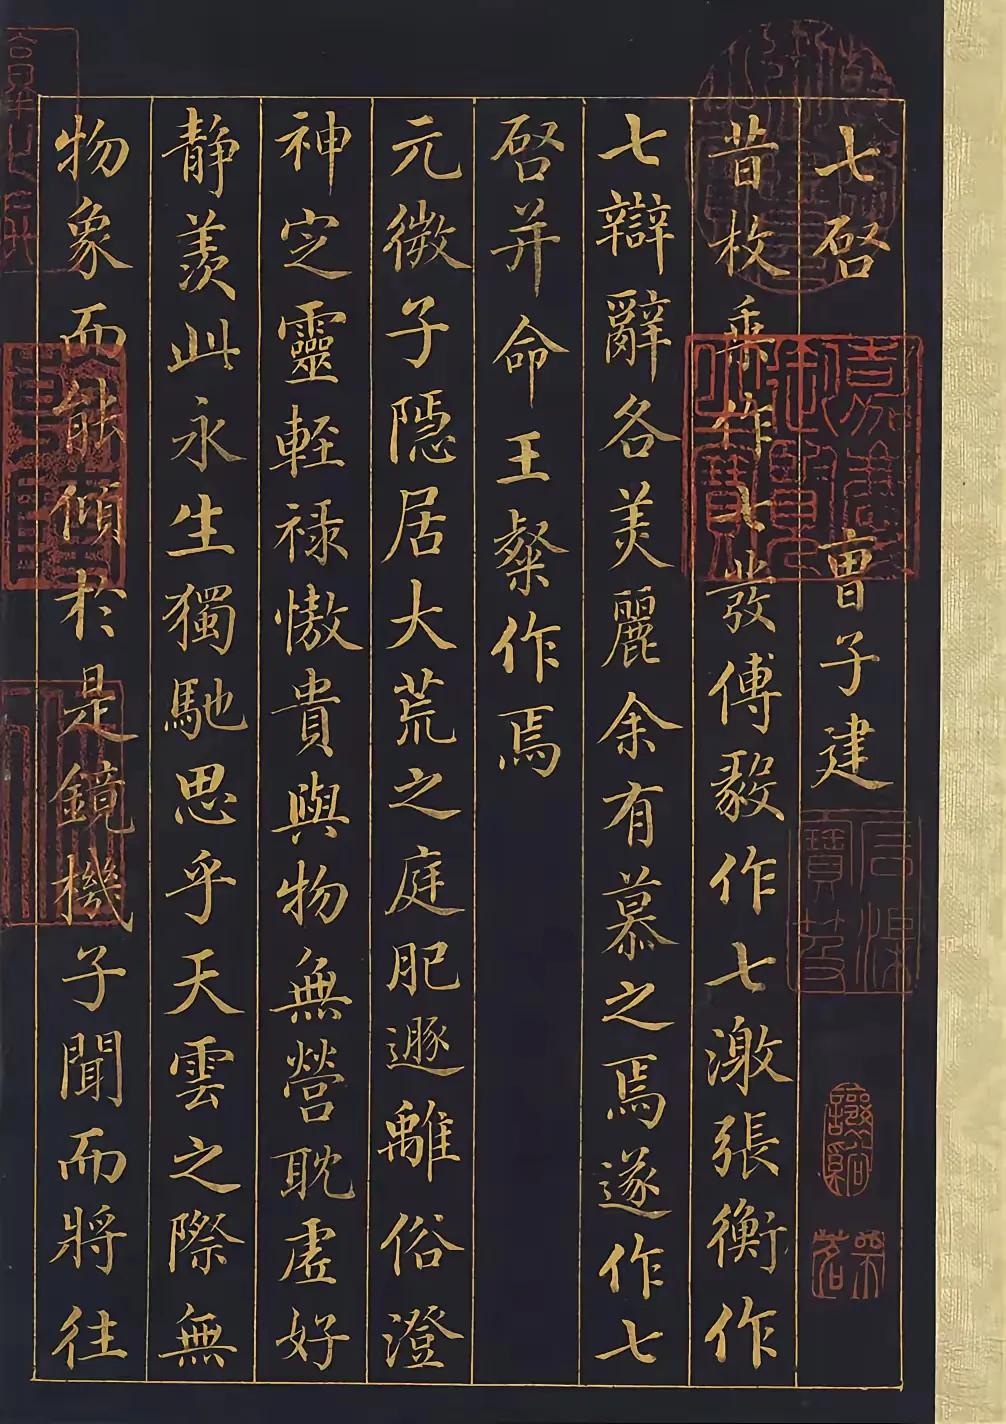 七啓 曹子建
昔枚乘作七發傅毅作七激張衡作
七辯辭各美麗余有慕之焉遂作七
啓并命王粲作焉
元微子隱居大荒之庭肥遯離俗澄
神定靈輕祿慠貴與物無營耽虛好
靜羡此永生獨馳思乎天雲之際無
物象而能傾於是鏡機子聞而將往
嘉慶御覽之寶